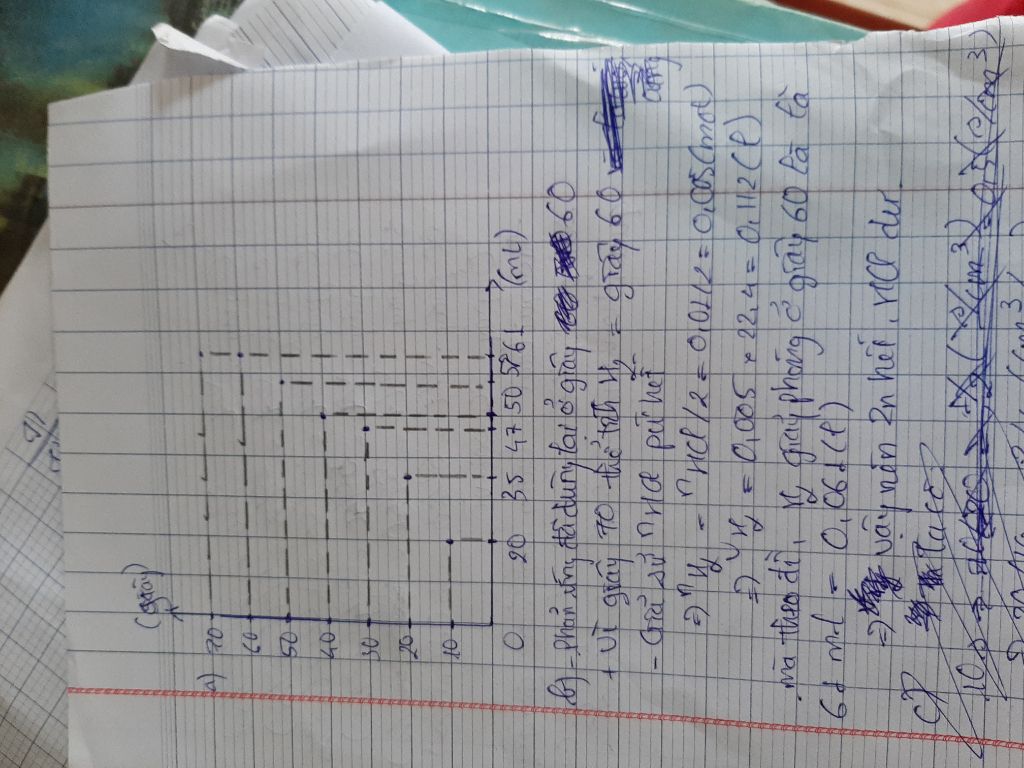 (giây)
a) 70
60
50
40
30
20
10
0 20 35 47 50 57 61 (ml)
b) - Phản ứng đã dừng tại ở giây 60
+ Vì giây 70 thể tích H₂ = giây 60
- Giả sử nHCl pứ hết
=> nH₂ = nHCl/2 = 0,01/2 = 0,005 (mol)
=> VH₂ = 0,005 × 22,4 = 0,112 (l)
mà theo đề, H₂ giải phóng ở giây 60 là là
61 ml = 0,061 (l)
=> vậy nên Zn hết, HCl dư
c) Ta có